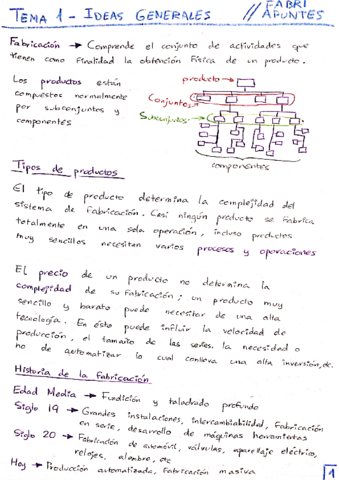 TEMA 1 - IDEAS GENERALES // FABRI APUNTES
Fabricación → Comprende el conjunto de actividades que
tienen como finalidad la obtención física de un producto.
Los productos están
compuestos normalmente
por subconjuntos y
componentes
producto →
Conjuntos
Subconjuntos
componentes
Tipos de productos
El tipo de producto determina la complejidad del
sistema de fabricación. Casi ningún producto se fabrica
totalmente en una sola operación, incluso productos
muy sencillos necesitan varios procesos y operaciones
El precio de un producto no determina la
complejidad de su fabricación; un producto muy
sencillo y barato puede necesitar de una alta
tecnología. En ésto puede influir la velocidad de
producción, el tamaño de las series, la necesidad o
no de automatizar lo cual conlleva una alta inversión, etc.
Historia de la fabricación
Edad Media → Fundición y taladrado profundo
Siglo 19 → Grandes instalaciones, intercambiabilidad, fabricación
en serie, desarrollo de máquinas herramientas
Siglo 20 → Fabricación de automóvil, válvulas, aparellaje eléctrico,
relojes, alambre, etc
Hoy → Producción automatizada, fabricación masiva
1